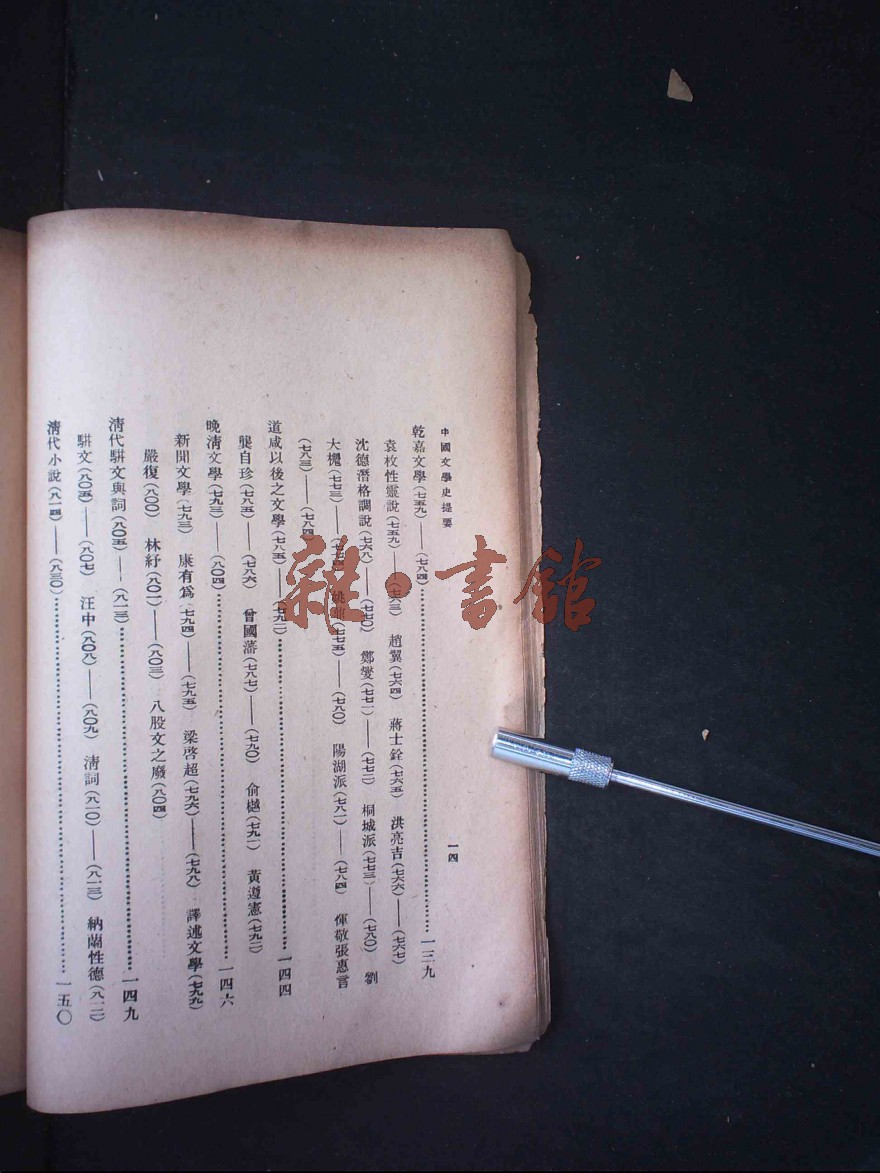 中國文學史提要
一四
乾嘉文學(七五九)——(七八四)……一三九
袁枚性靈說(七五九)——(七六三) 趙翼(七六四) 蔣士銓(七六五) 洪亮吉(七六六)——(七六七)
沈德潛格調說(七六八)——(七七〇) 鄭燮(七七一)——(七七二) 桐城派(七七三)——(七八〇) 劉
大櫆(七七三)——(七七四) 姚鼐(七七五)——(七八〇) 陽湖派(七八一)——(七八四) 惲敬張惠言
(七八三)——(七八四)
道咸以後之文學(七八五)——(七九二)……一四四
龔自珍(七八五)——(七八六) 曾國藩(七八七)——(七九〇) 俞樾(七九一) 黃遵憲(七九二)
晚清文學(七九三)——(八〇四)……一四六
新聞文學(七九三) 康有爲(七九四)——(七九五) 梁啓超(七九六)——(七九八) 譯述文學(七九九)
嚴復(八〇〇) 林紓(八〇一)——(八〇三) 八股文之廢(八〇四)
清代駢文與詞(八〇五)——(八一三)……一四九
駢文(八〇五)——(八〇七) 汪中(八〇八)——(八〇九) 清詞(八一〇)——(八一三) 納蘭性德(八一二)
清代小說(八一四)——(八三〇)……一五〇
雜·書館